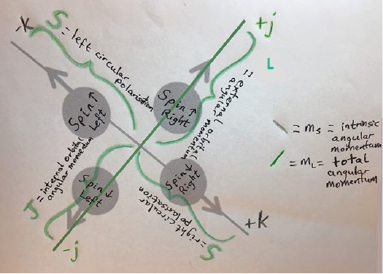 -K
S
= left circular polarization
+j
L
= external orbital
angular momentum
Spin↑
Left
Spin↑
Right
= ms = intrinsic
angular
momentum
= mL = total
angular
momentum
= internal orbital
angular momentum
Spin↓
Left
Spin↓
Right
= right circular
polarisation
S
-j
+K